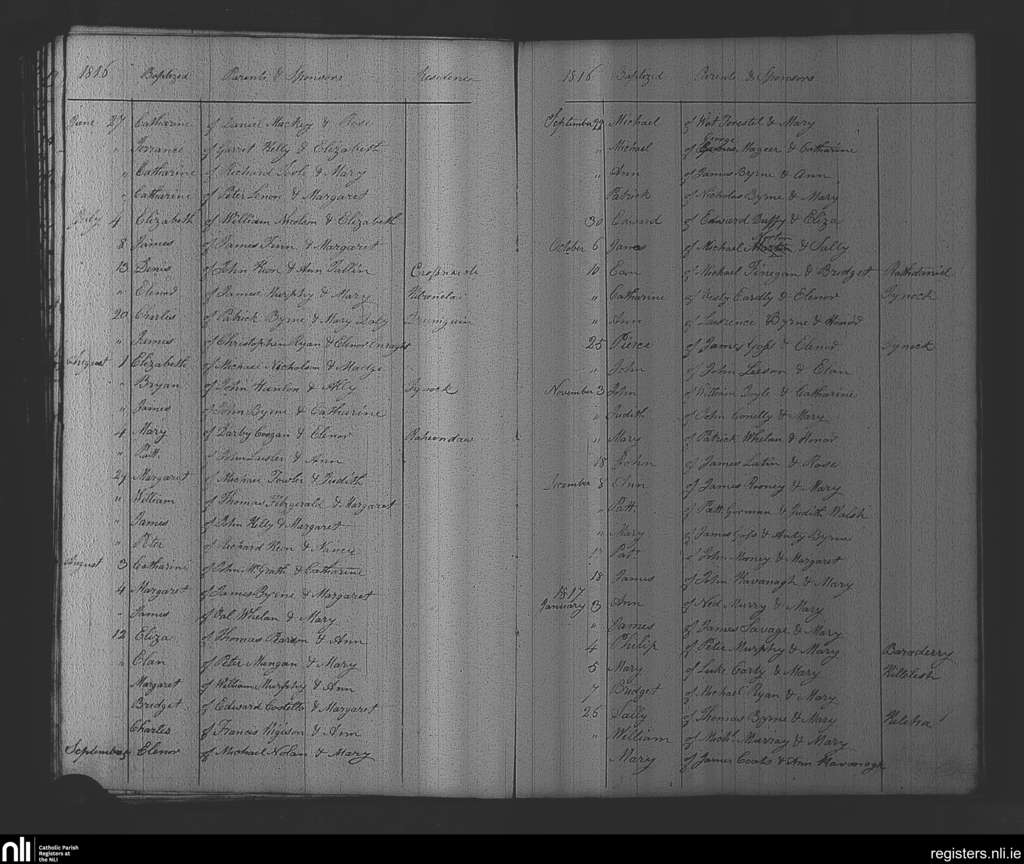 1816 Baptized Parents & Sponsors Residence
June 27 Catharine of Daniel Mackey & Rose
" Torrance of Garret Kelly & Elizabeth
" Catharine of Richard Toole & Mary
" Catharine of Peter Lenon & Margaret
July 4 Elizabeth of William Nicolson & Elizabeth
8 James of James Finn & Margaret
13 Denis of John Keon & Ann Tallin
" Elenor of James Murphy & Mary
20 Charles of Patrick Byrne & Mary Daly
" James of Christopher Ryan & Elenor Enright
August 1 Elizabeth of Michael Nicholson & Madge
" Bryan of John Hanlon & Ally Tynock
" James of John Byrne & Catharine
4 Mary of Darby Coogan & Elenor
" Patt of John & Ann
29 Margaret of Michael Fowler & Judith
" William of Thomas Fitzgerald & Margaret
" James of John Kelly & Margaret
" Peter of Richard Keon & Nancy
August 3 Catharine of John McGrath & Catharine
4 Margaret of James Byrne & Margaret
" James of Pat Whelan & Mary
12 Eliza of Thomas & Ann
" Elan of Peter Mangan & Mary
Margaret of William Murphy & Ann
Bridget of Edward Costello & Margaret
Charles of Francis Higison & Ann
September Elenor of Michael Nolan & Mary
1816 Baptized Parents & Sponsors
September 22 Michael of Wat Forestel & Mary
" Michael of George & Catharine
" Ann of James Byrne & Ann
Patrick of Nicholas Byrne & Mary
30 Edward of Edward Duffy & Eliza
October 6 James of Michael & Sally
10 Ean of Michael Finegan & Bridget Rathdaniel
" Catharine of Festy Eardly & Elenor Tynock
" Ann of Lawrence Byrne & Honor
25 Pierce of James Goss & Elenor Tynock
" John of John Leeson & Elan
November 3 John of William Doyle & Catharine
" Judith of John Conelly & Mary
" Mary of Patrick Whelan & Honor
18 John of James Latin & Rose
December 8 Ann of James Rooney & Mary
" Patt of Patt Gorman & Judith Walsh
" Mary of James Goss & Anty Byrne
Pat of John Mooney & Margaret
18 James of John Kavanagh & Mary
1817
January 3 Ann of Ned Murry & Mary
" James of James Savage & Mary
4 Philip of Peter Murphy & Mary Baraderry
5 Mary of Luke Carty & Mary Killelish
7 Bridget of Michael Ryan & Mary
26 Sally of Thomas Byrne & Mary
" William of Michl Murray & Mary
Mary of James Coats & Ann Kavanagh
nli Catholic Parish
Registers at
the NLI
registers.nli.ie